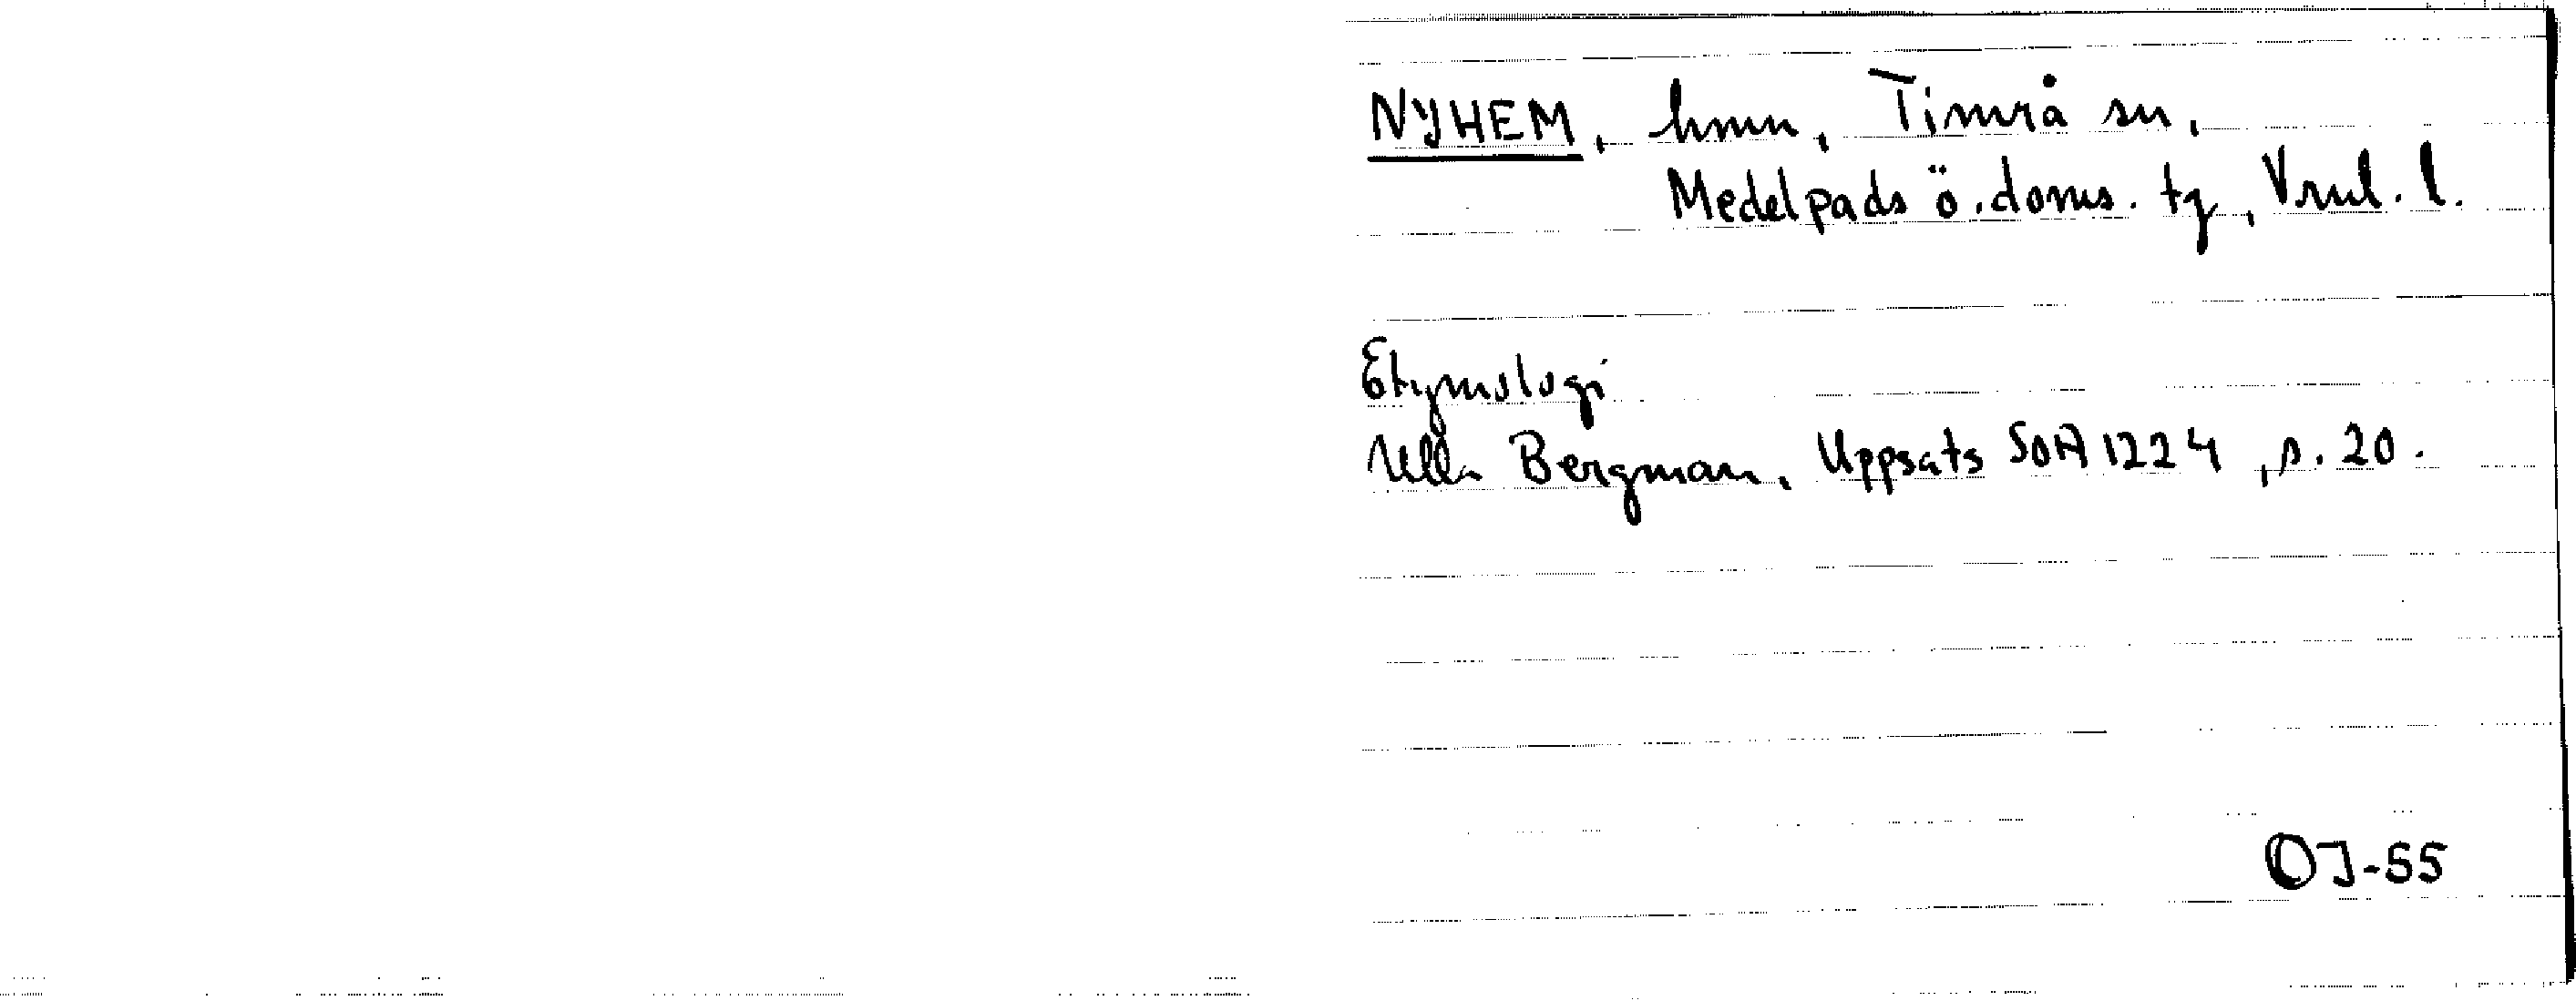 NYHEM, hmn, Timrå sn,
Medelpads ö. doms. tg, Vnl. l.
Etymologi
Ulla Bergman, Uppsats SOA 1224, s. 20.
OJ-55